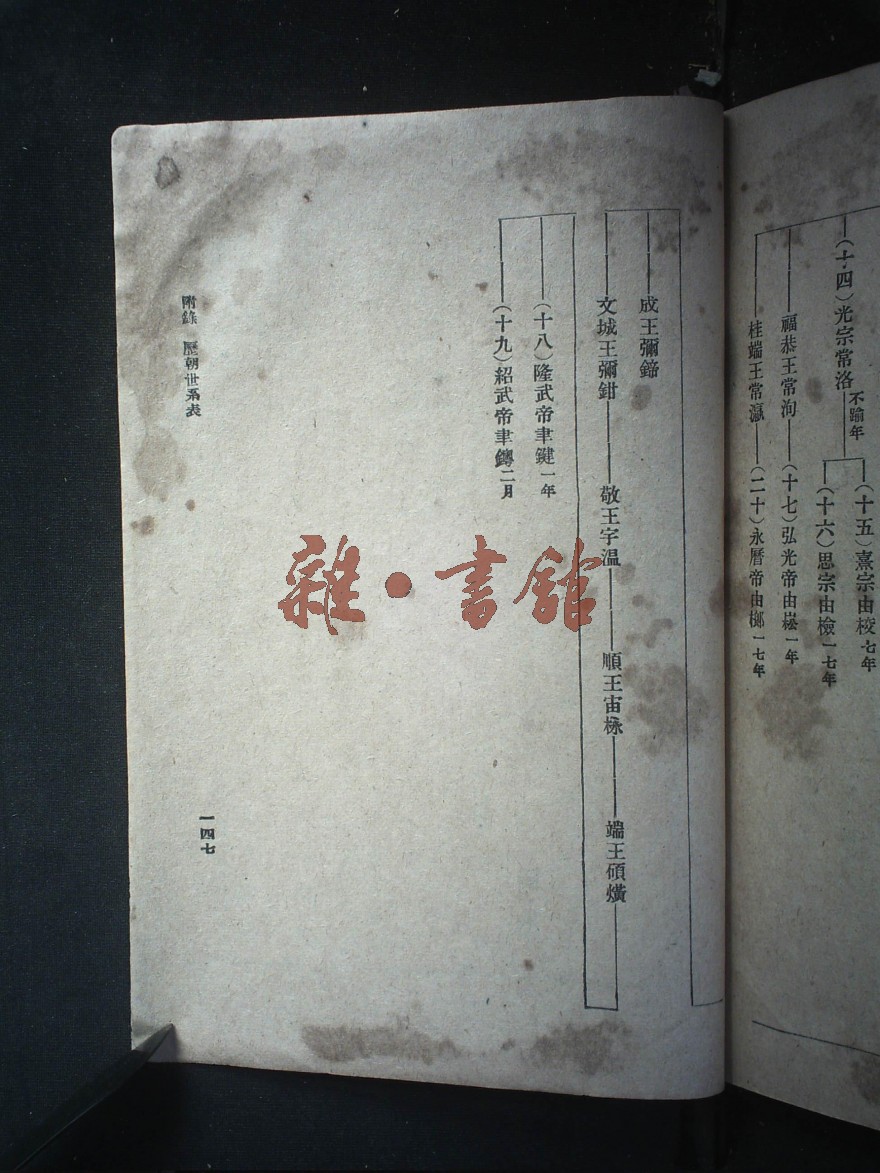 (十四)光宗常洛不踰年
(十五)熹宗由校七年
(十六)思宗由檢一七年
福恭王常洵
(十七)弘光帝由崧一年
桂端王常瀛
(二十)永曆帝由榔一七年
成王彌鍗
文城王彌鉗
敬王宇温
順王宙栐
端王碩熿
(十八)隆武帝聿鍵一年
(十九)紹武帝聿鐭二月
附錄 歷朝世系表
一四七
雜·書館